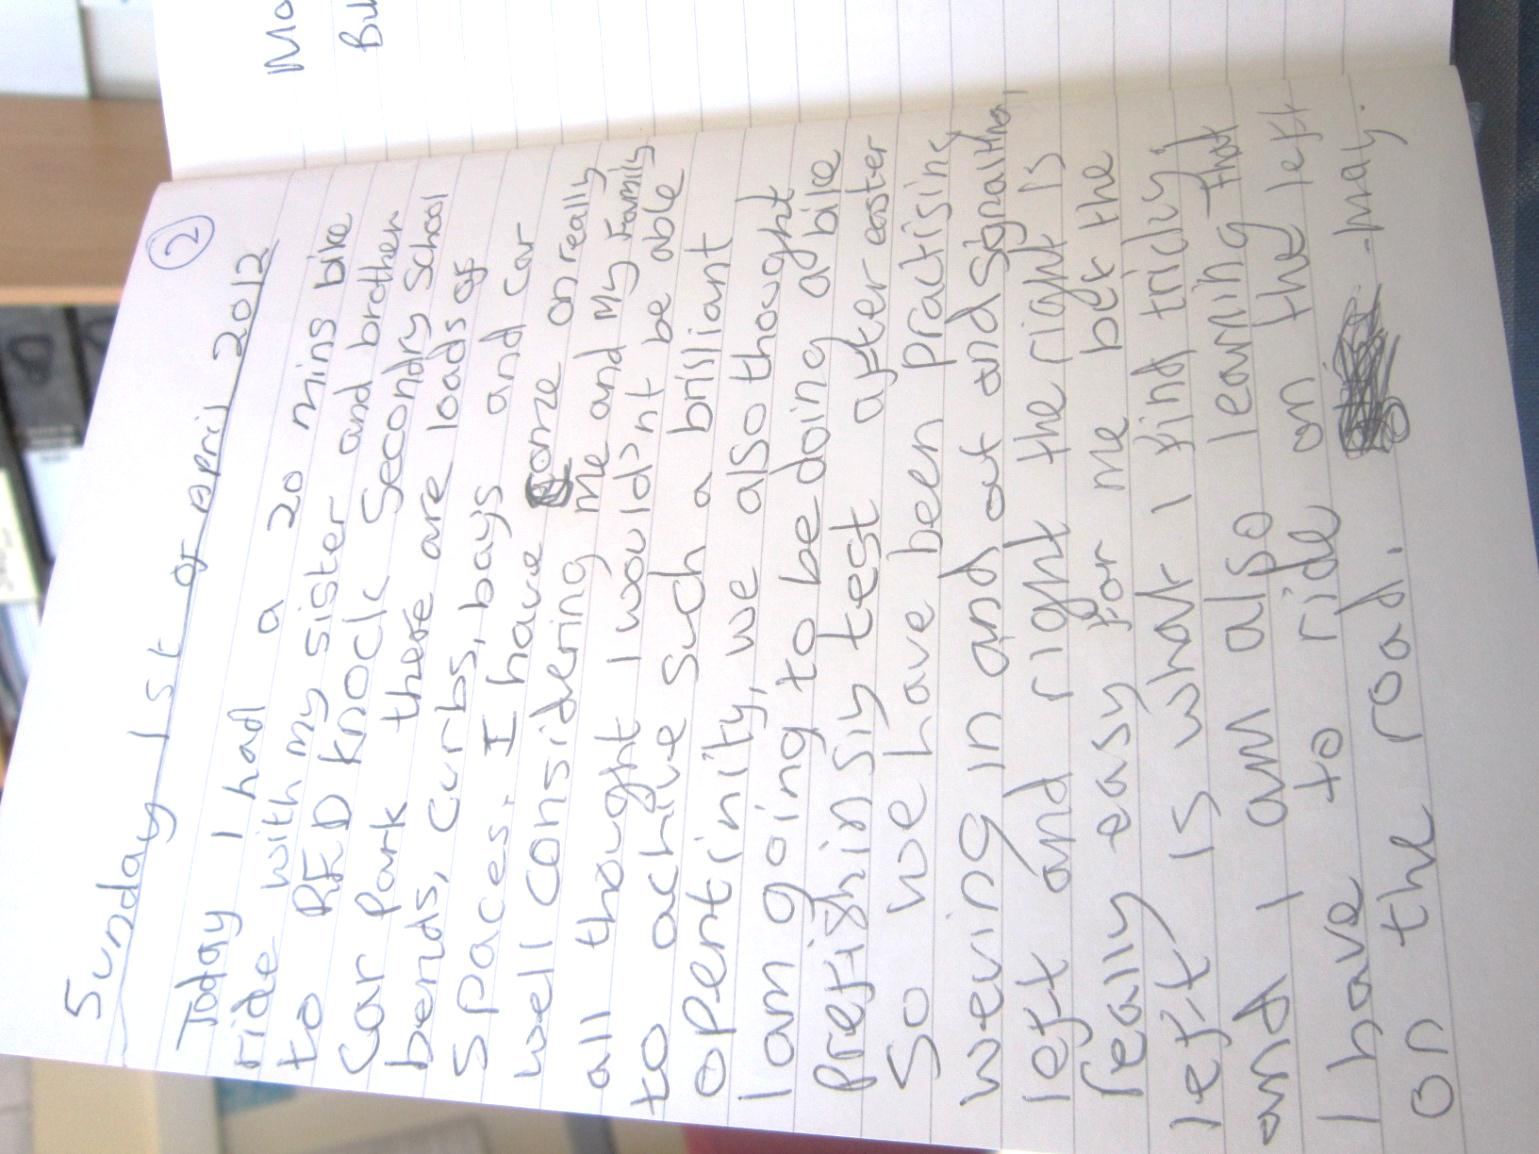 2
Sunday 1st of April 2012
Today I had a 20 mins bike
ride with my sister and brother
to RED knock Secondry School
Car Park there are loads of
bends, curbs, bays and car
spaces. I have come on really
well considering me and my family
all thought I would'nt be able
to achive such a brilliant
opentrinity, we also thought
I am going to be doing a bike
Prefishinsiy test after easter
So we have been practising
weving in and out and signalling,
left and right the right is
really easy for me bet the
left is what I find tricky
and I am also learning that
I have to ride on the left
on the road. may.
Mo
Bu